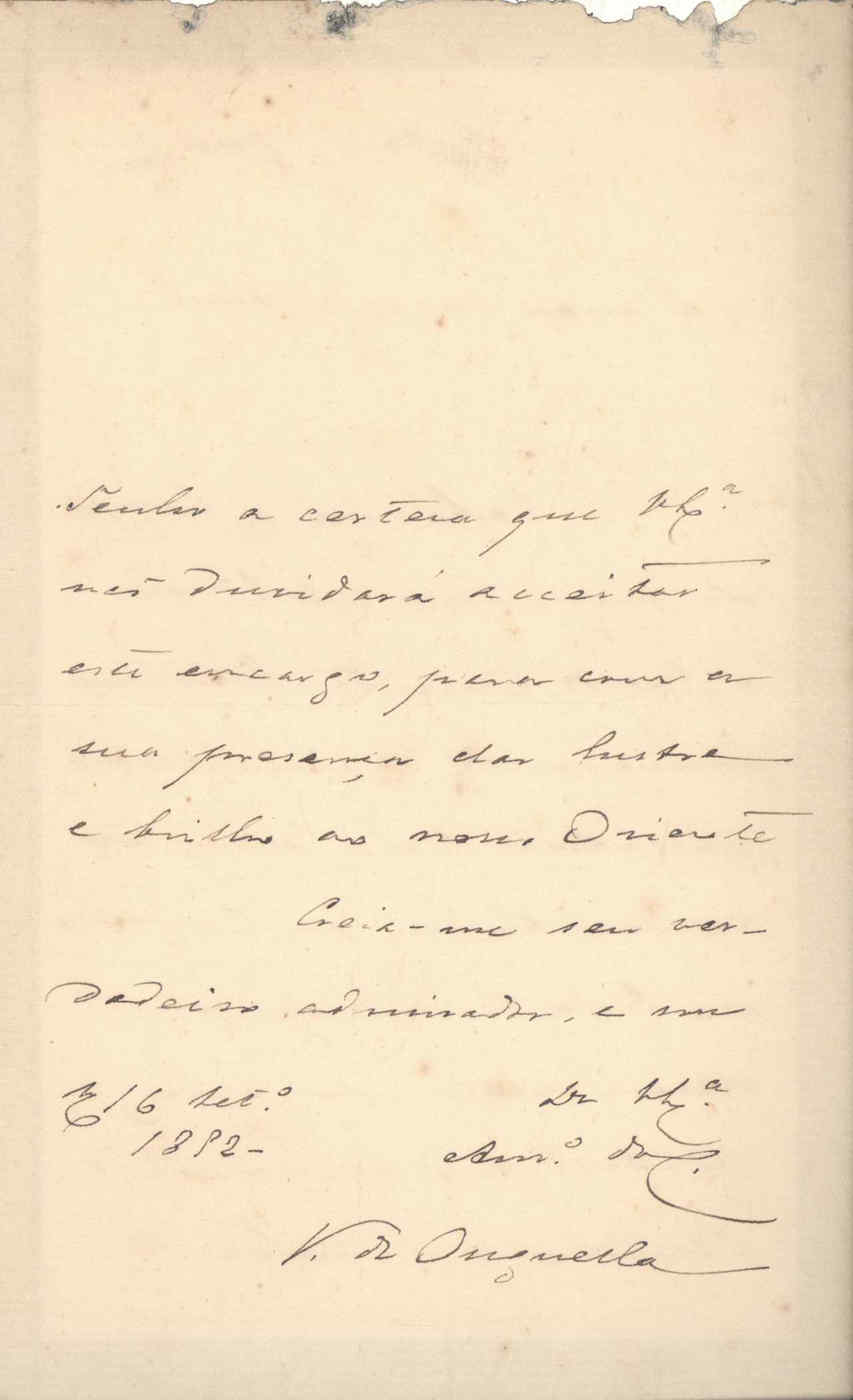 Tenho a certeza que V. Ex.ª
não duvidará acceitar
este encargo, para com a
sua presença dar lustre
e brilho ao nosso Oriente
Creia-me seu ver-
dadeiro admirador, e sou
16 Set.º De V. Ex.ª
1892- Am.º
V. de Ouguella